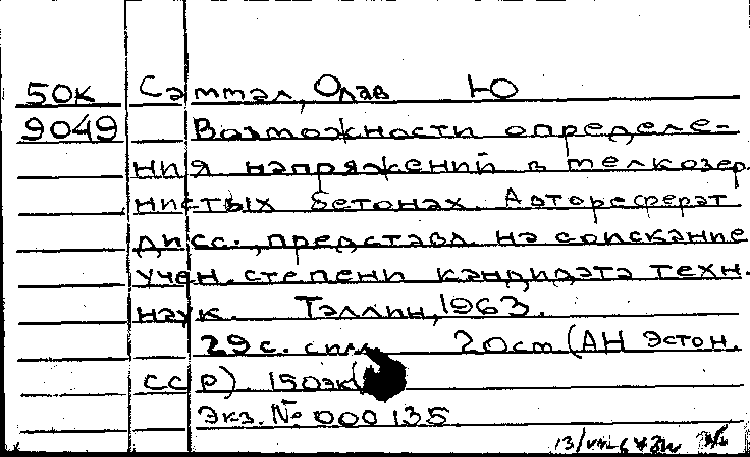 50к Сэттэл, Олав Ю
9049 Возможности определе-
ния напряжений в мелкозер
нистых бетонах. Автореферат
дисс., представл. на соискание
учен. степени кандидата техн.
наук. Таллин, 1963.
29 с. с илл. 20 см (АН Эстон.
ССР). 150 эк
Экз. № 000135